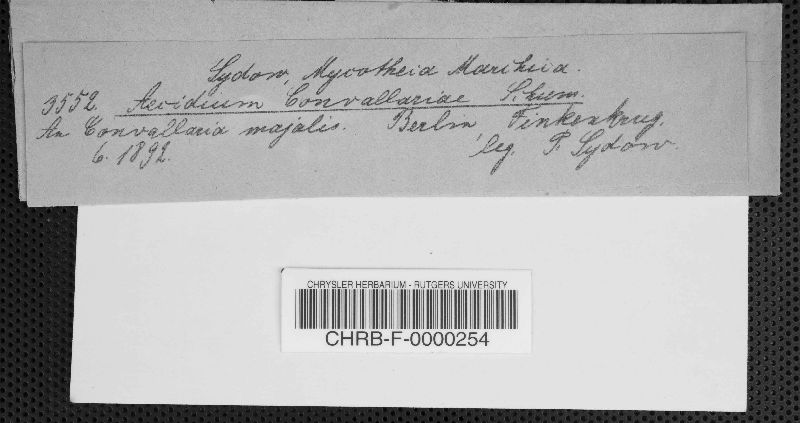 Sydow, Mycotheca Marchica.
3552. Aecidium Convallariae Schum.
An Convallaria majalis. Berlin, Finkenkrug.
6. 1892. leg. P. Sydow.
CHRYSLER HERBARIUM - RUTGERS UNIVERSITY
CHRB-F-0000254